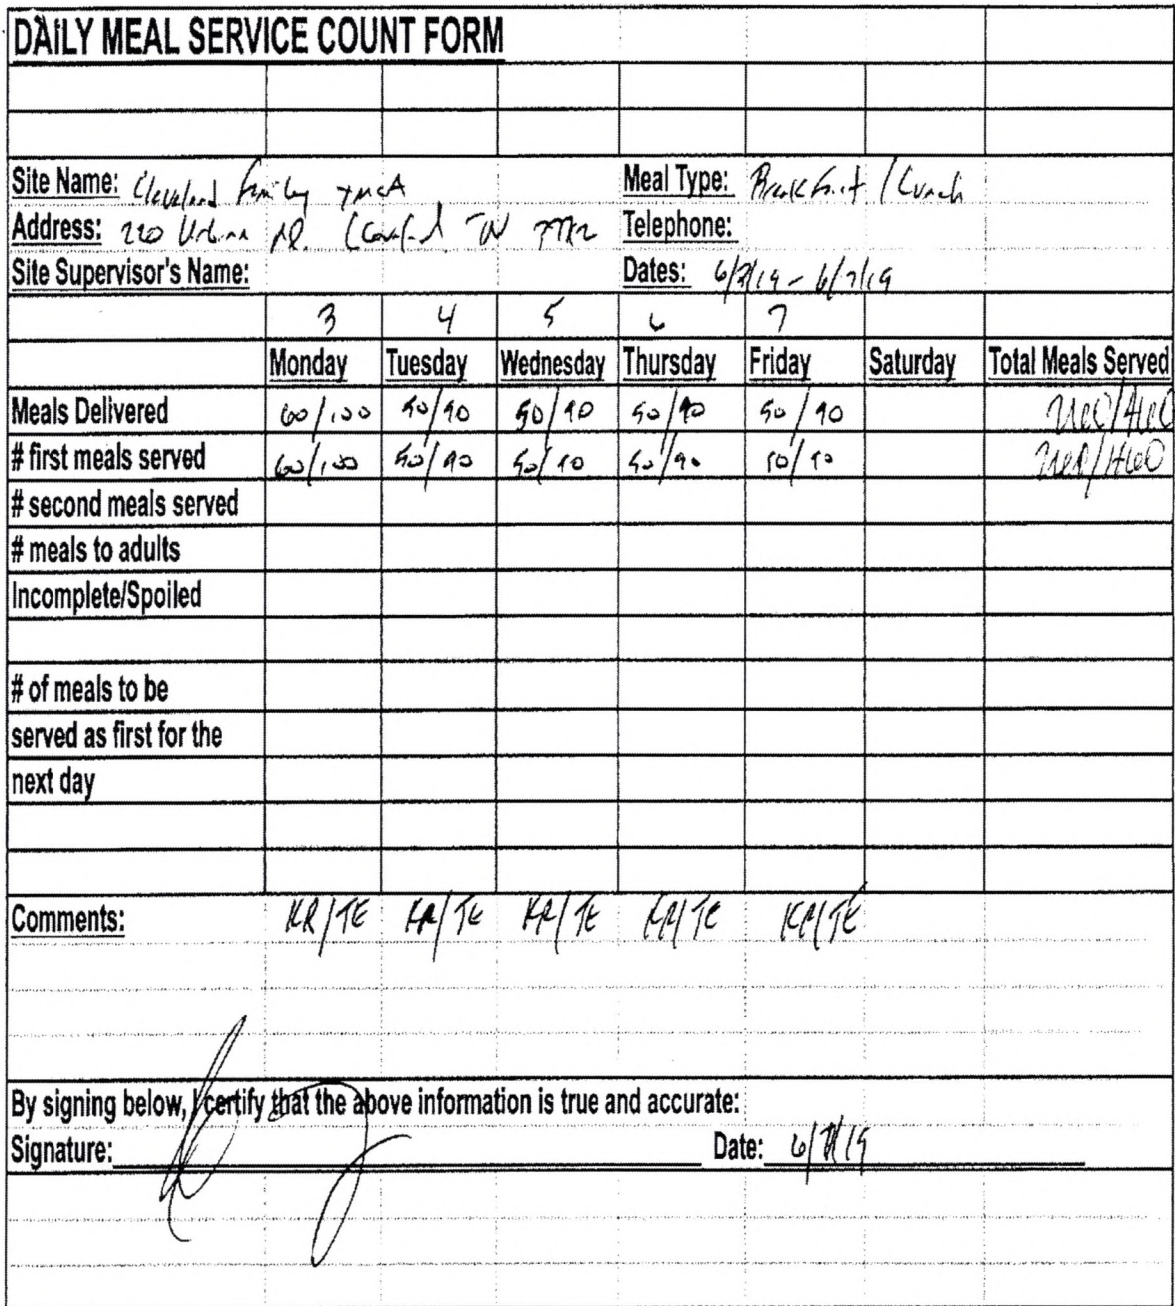 DAILY MEAL SERVICE COUNT FORM
Site Name: Cleveland Family YMCA Meal Type: Breakfast / Lunch
Address: 220 Urbane Rd. TN Telephone:
Site Supervisor's Name: Dates: 6/3/19 - 6/7/19
3 4 5 6 7
Monday Tuesday Wednesday Thursday Friday Saturday Total Meals Served
Meals Delivered 60/100 50/90 50/90 50/90 50/90 260/460
# first meals served 60/100 50/90 50/90 50/90 50/90 260/460
# second meals served
# meals to adults
Incomplete/Spoiled
# of meals to be
served as first for the
next day
Comments: KR/TE KR/TE KR/TE KR/TE KR/TE
By signing below, I certify that the above information is true and accurate:
Signature: Date: 6/7/19